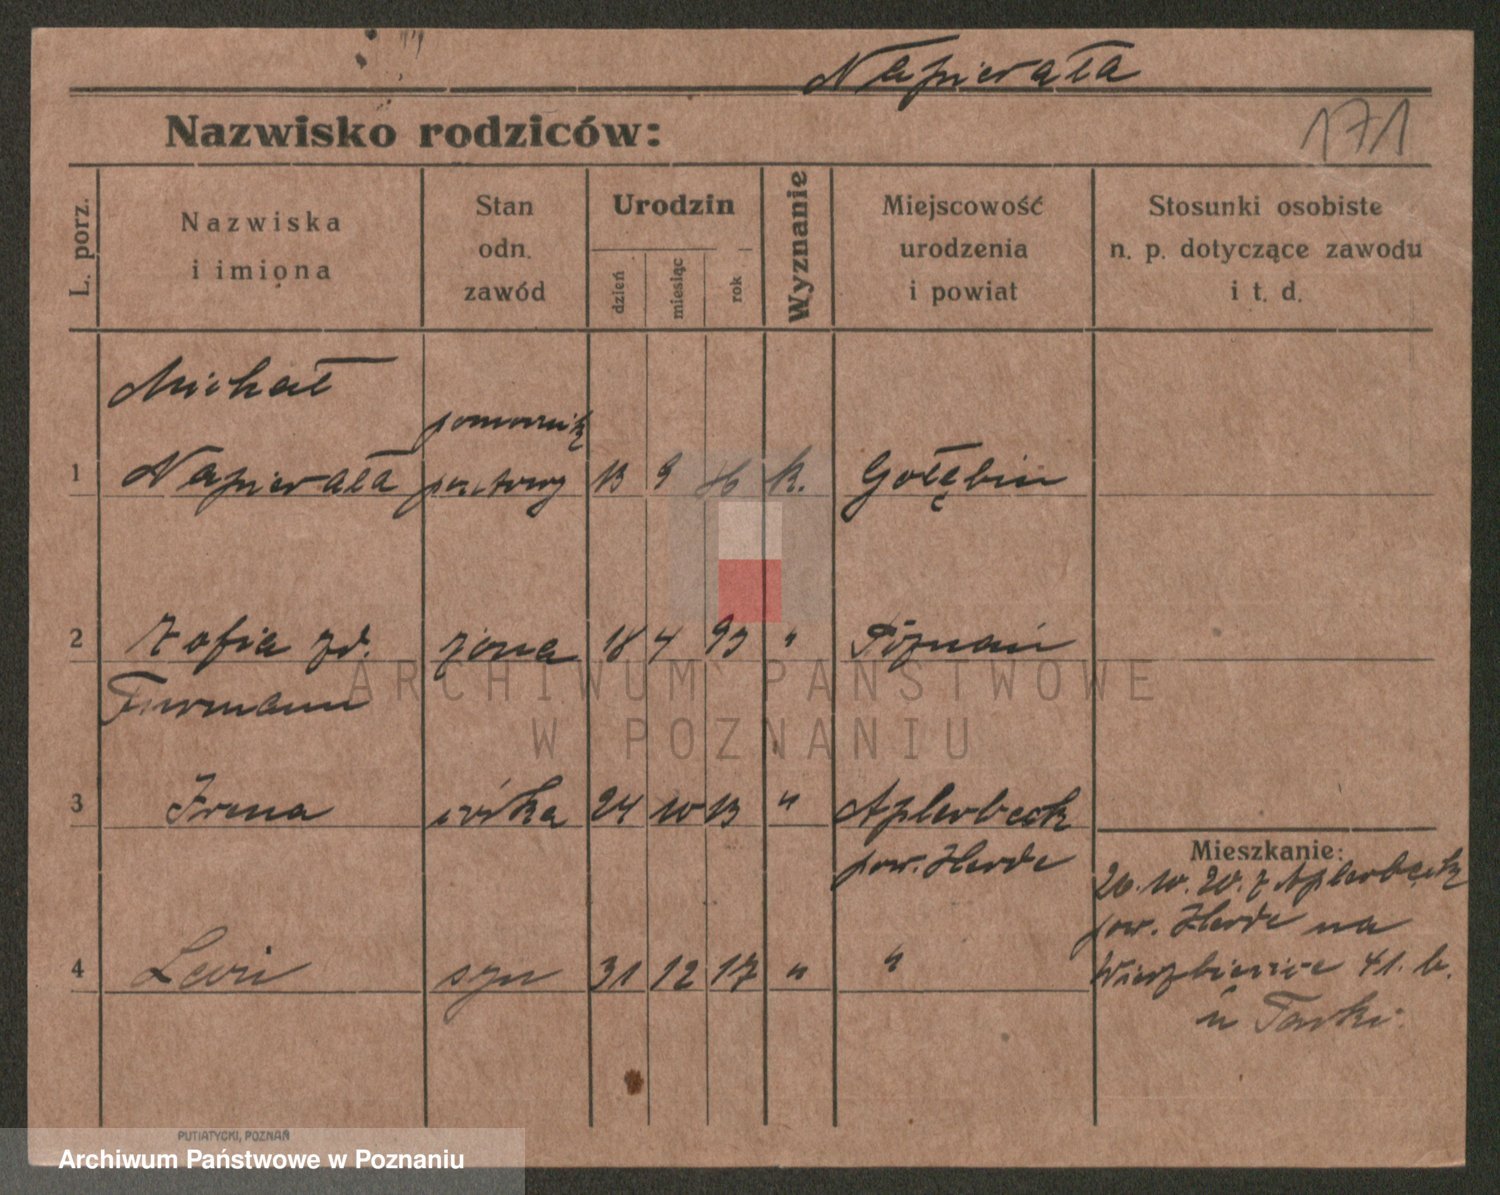 Napierała
Nazwisko rodziców:
171
L. porz.
Nazwiska
i imiona
Stan
odn.
zawód
Urodzin
dzień
miesiąc
rok
Wyznanie
Miejscowość
urodzenia
i powiat
Stosunki osobiste
n. p. dotyczące zawodu
i t. d.
Michał
pomocnik
1 Napierała pocztowy 13 9 k. Gołębin
2 Zofia zd. żona 18 4 93 " Poznań
Furmann
ARCHIWUM PAŃSTWOWE
W POZNANIU
3 Irena córka 24 10 13 " Aplerbeck
pow. Herde
Mieszkanie:
26.10.20. z Aplerbeck
pow. Herde na
Wierzbięcice 41. b.
4 syn 31 12 17 " "
u
PUTIATYCKI, POZNAŃ
Archiwum Państwowe w Poznaniu